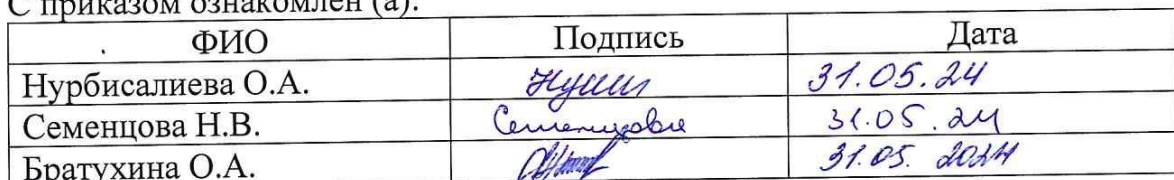 С приказом ознакомлен (а):
ФИО Подпись Дата
Нурбисалиева О.А. 31.05.24
Семенцова Н.В. Семенцова 31.05.24
Братухина О.А. 31.05. 2024